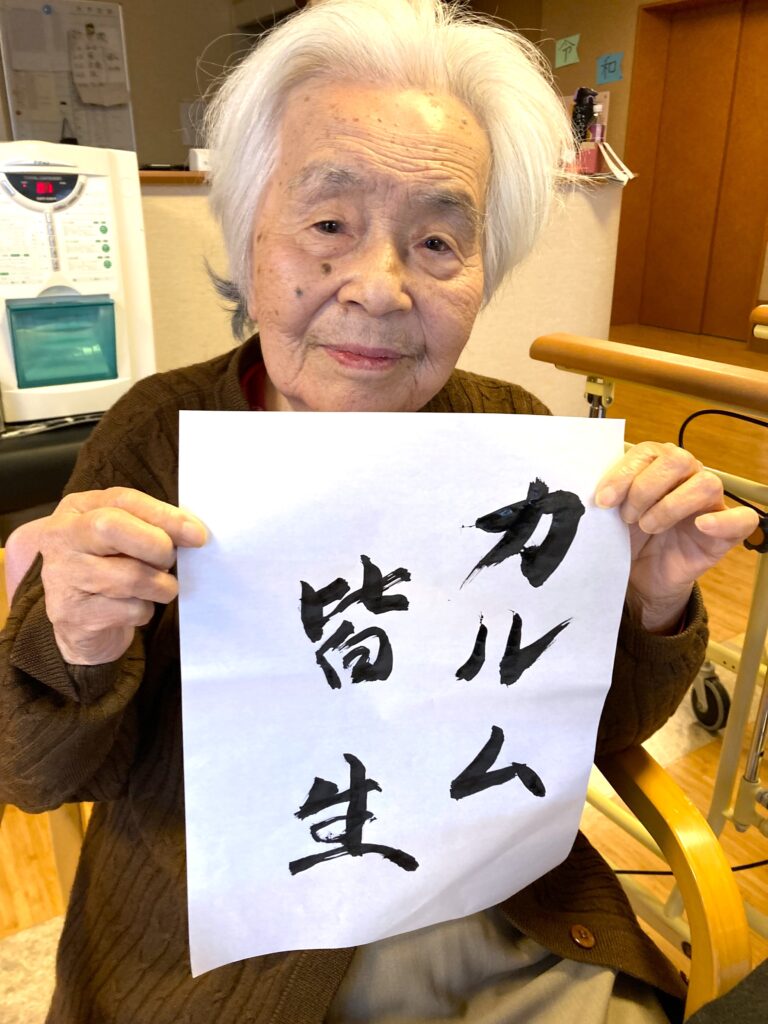 カルム
皆生
令
和